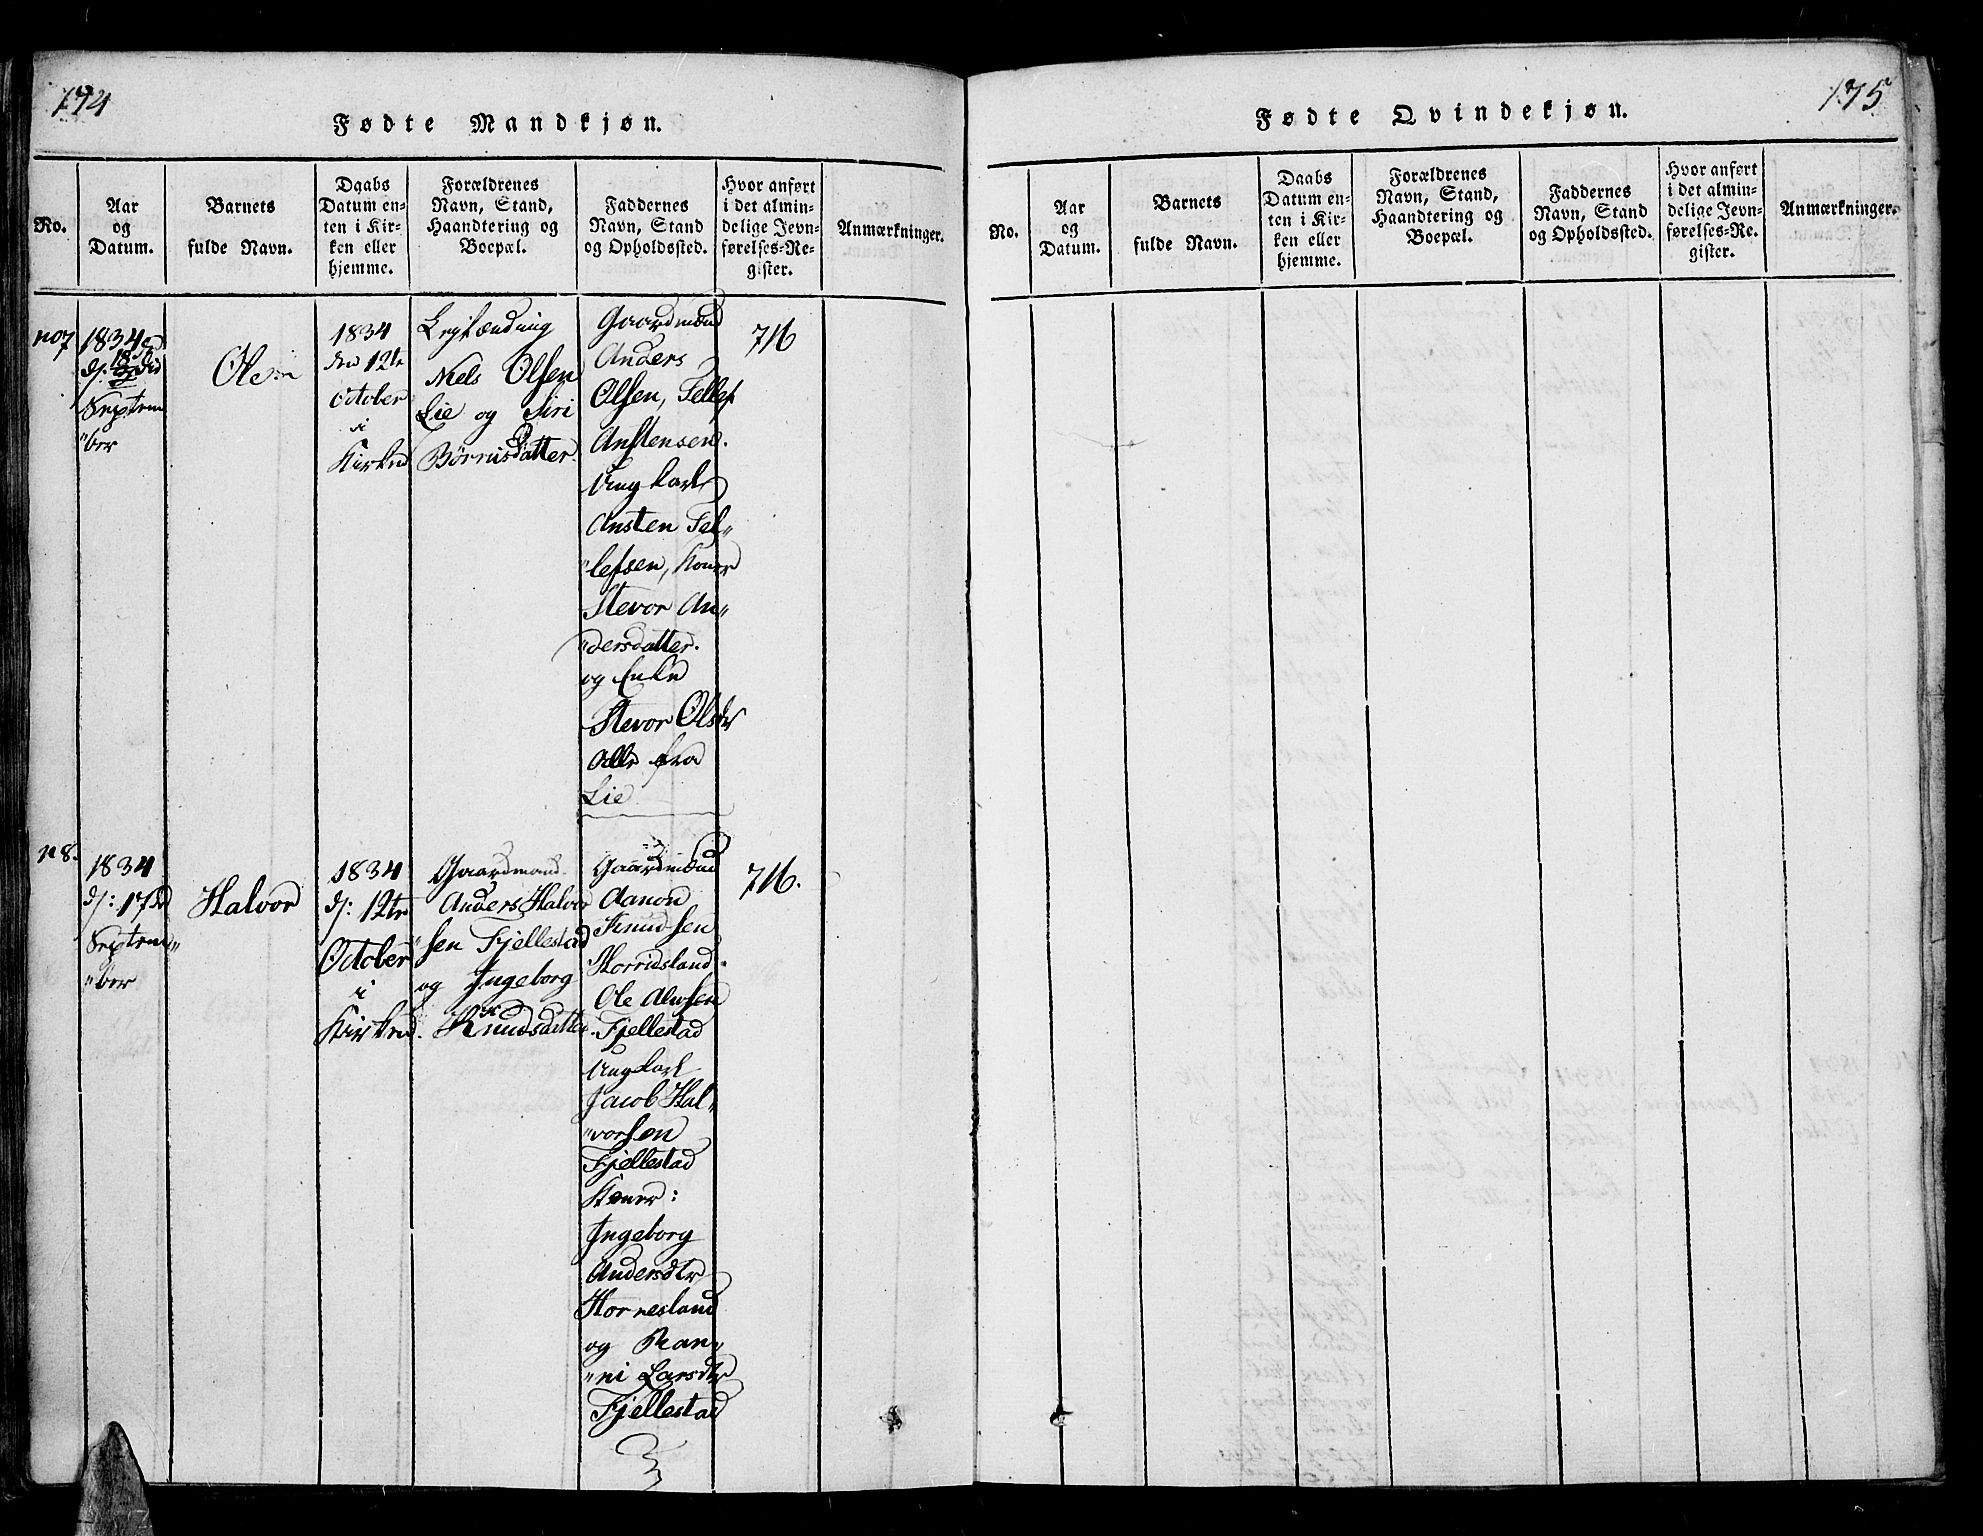 174
Fødte Mandkjøn.
No.
Aar
og
Datum.
Barnets
fulde Navn.
Daabs
Datum en-
ten i Kir-
ken eller
hjemme.
Forældrenes
Navn, Stand,
Haandtering og
Boepæl.
Faddernes
Navn, Stand
og Opholdssted.
Hvor anført
i det almin-
delige Jevn-
førelses-Re-
gister.
Anmærkninger.
no 7
1834
Septem
"ber
Ole
1834
den 12te
October
i
Kirken
Leylænding
Niels Olsen
Lie og Siri
Børnisdatter
Gaardmænd
Anders
Olsen, Tellef
Anstensen.
Ungkarl
Ansten Tel"
"lefsen, Koner
Stevor An"
"dersdatter.
og Enke
Stevor Olsdtr
Alle fra
Lie
716
n 8.
1834
d: 17de
Septem"
"ber
Halvor
1834
d: 12te
October
i
Kirken.
Gaardmand
Anders Halvor
"sen Fjellestad
og Ingeborg
Knudsdatter
Gaardmænd
Aanon
Knudsen
Ole
Fjellestad
Ungkarl
Jacob Hal"
"vorsen
Fjellestad
Koner:
Ingeborg
Andersdtr
og Ran"
"ni Larsdtr
Fjellestad
716.
175
Fødte Qvindekjøn.
No.
Aar
og
Datum.
Barnets
fulde Navn.
Daabs
Datum en-
ten i Kir-
ken eller
hjemme.
Forældrenes
Navn, Stand,
Haandtering og
Boepæl.
Faddernes
Navn, Stand
og Opholdssted.
Hvor anført
i det almin-
delige Jevn-
førelses-Re-
gister.
Anmærkninger.